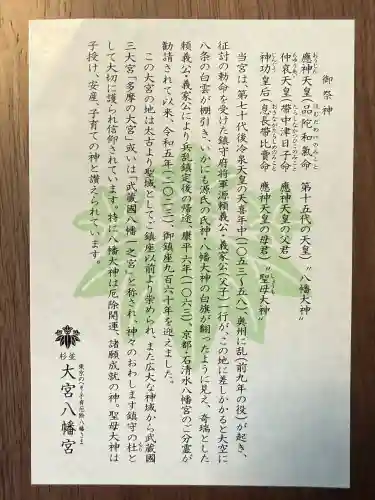 御祭神
應神天皇(品陀和氣命 第十五代の天皇)〝八幡大神〟
おうじん
ほむだわけのみこと
仲哀天皇(帯中津日子命 應神天皇の父君)
ちゅうあい
たらしなかつひこのみこと
神功皇后(息長帯比賣命 應神天皇の母君)〝聖母大神〟
じんぐう
おきながたらしひめのみこと
当宮は、第七十代後冷泉天皇の天喜年中(一〇五三〜五八)、奥州に乱(前九年の役)が起き、
征討の勅命を受けた鎮守府将軍源頼義公・義家公(父子)一行が、この地に差しかかると大空に
八条の白雲が棚引き、いかにも源氏の氏神・八幡大神の白旗が翻ったように見え、奇瑞とした
頼義公・義家公により兵乱鎮定後の帰途、康平六年(一〇六三)、京都・石清水八幡宮のご分霊が
勧請されて以来、令和五年(二〇二三)、御鎮座九百六十年を迎えました。
この大宮の地は太古より聖域として、ご鎮座以前より崇められ、また広大な神域から武蔵國
三大宮「多摩の大宮」或いは「武蔵國八幡一之宮」と称され、神々のおわします鎮守の杜と
もり
して大切に護られ信仰されています。特に八幡大神は厄除開運、諸願成就の神。聖母大神は
子授け、安産、子育ての神と讃えられています。
杉並
東京のへそ 子育厄除八幡さま
大宮八幡宮